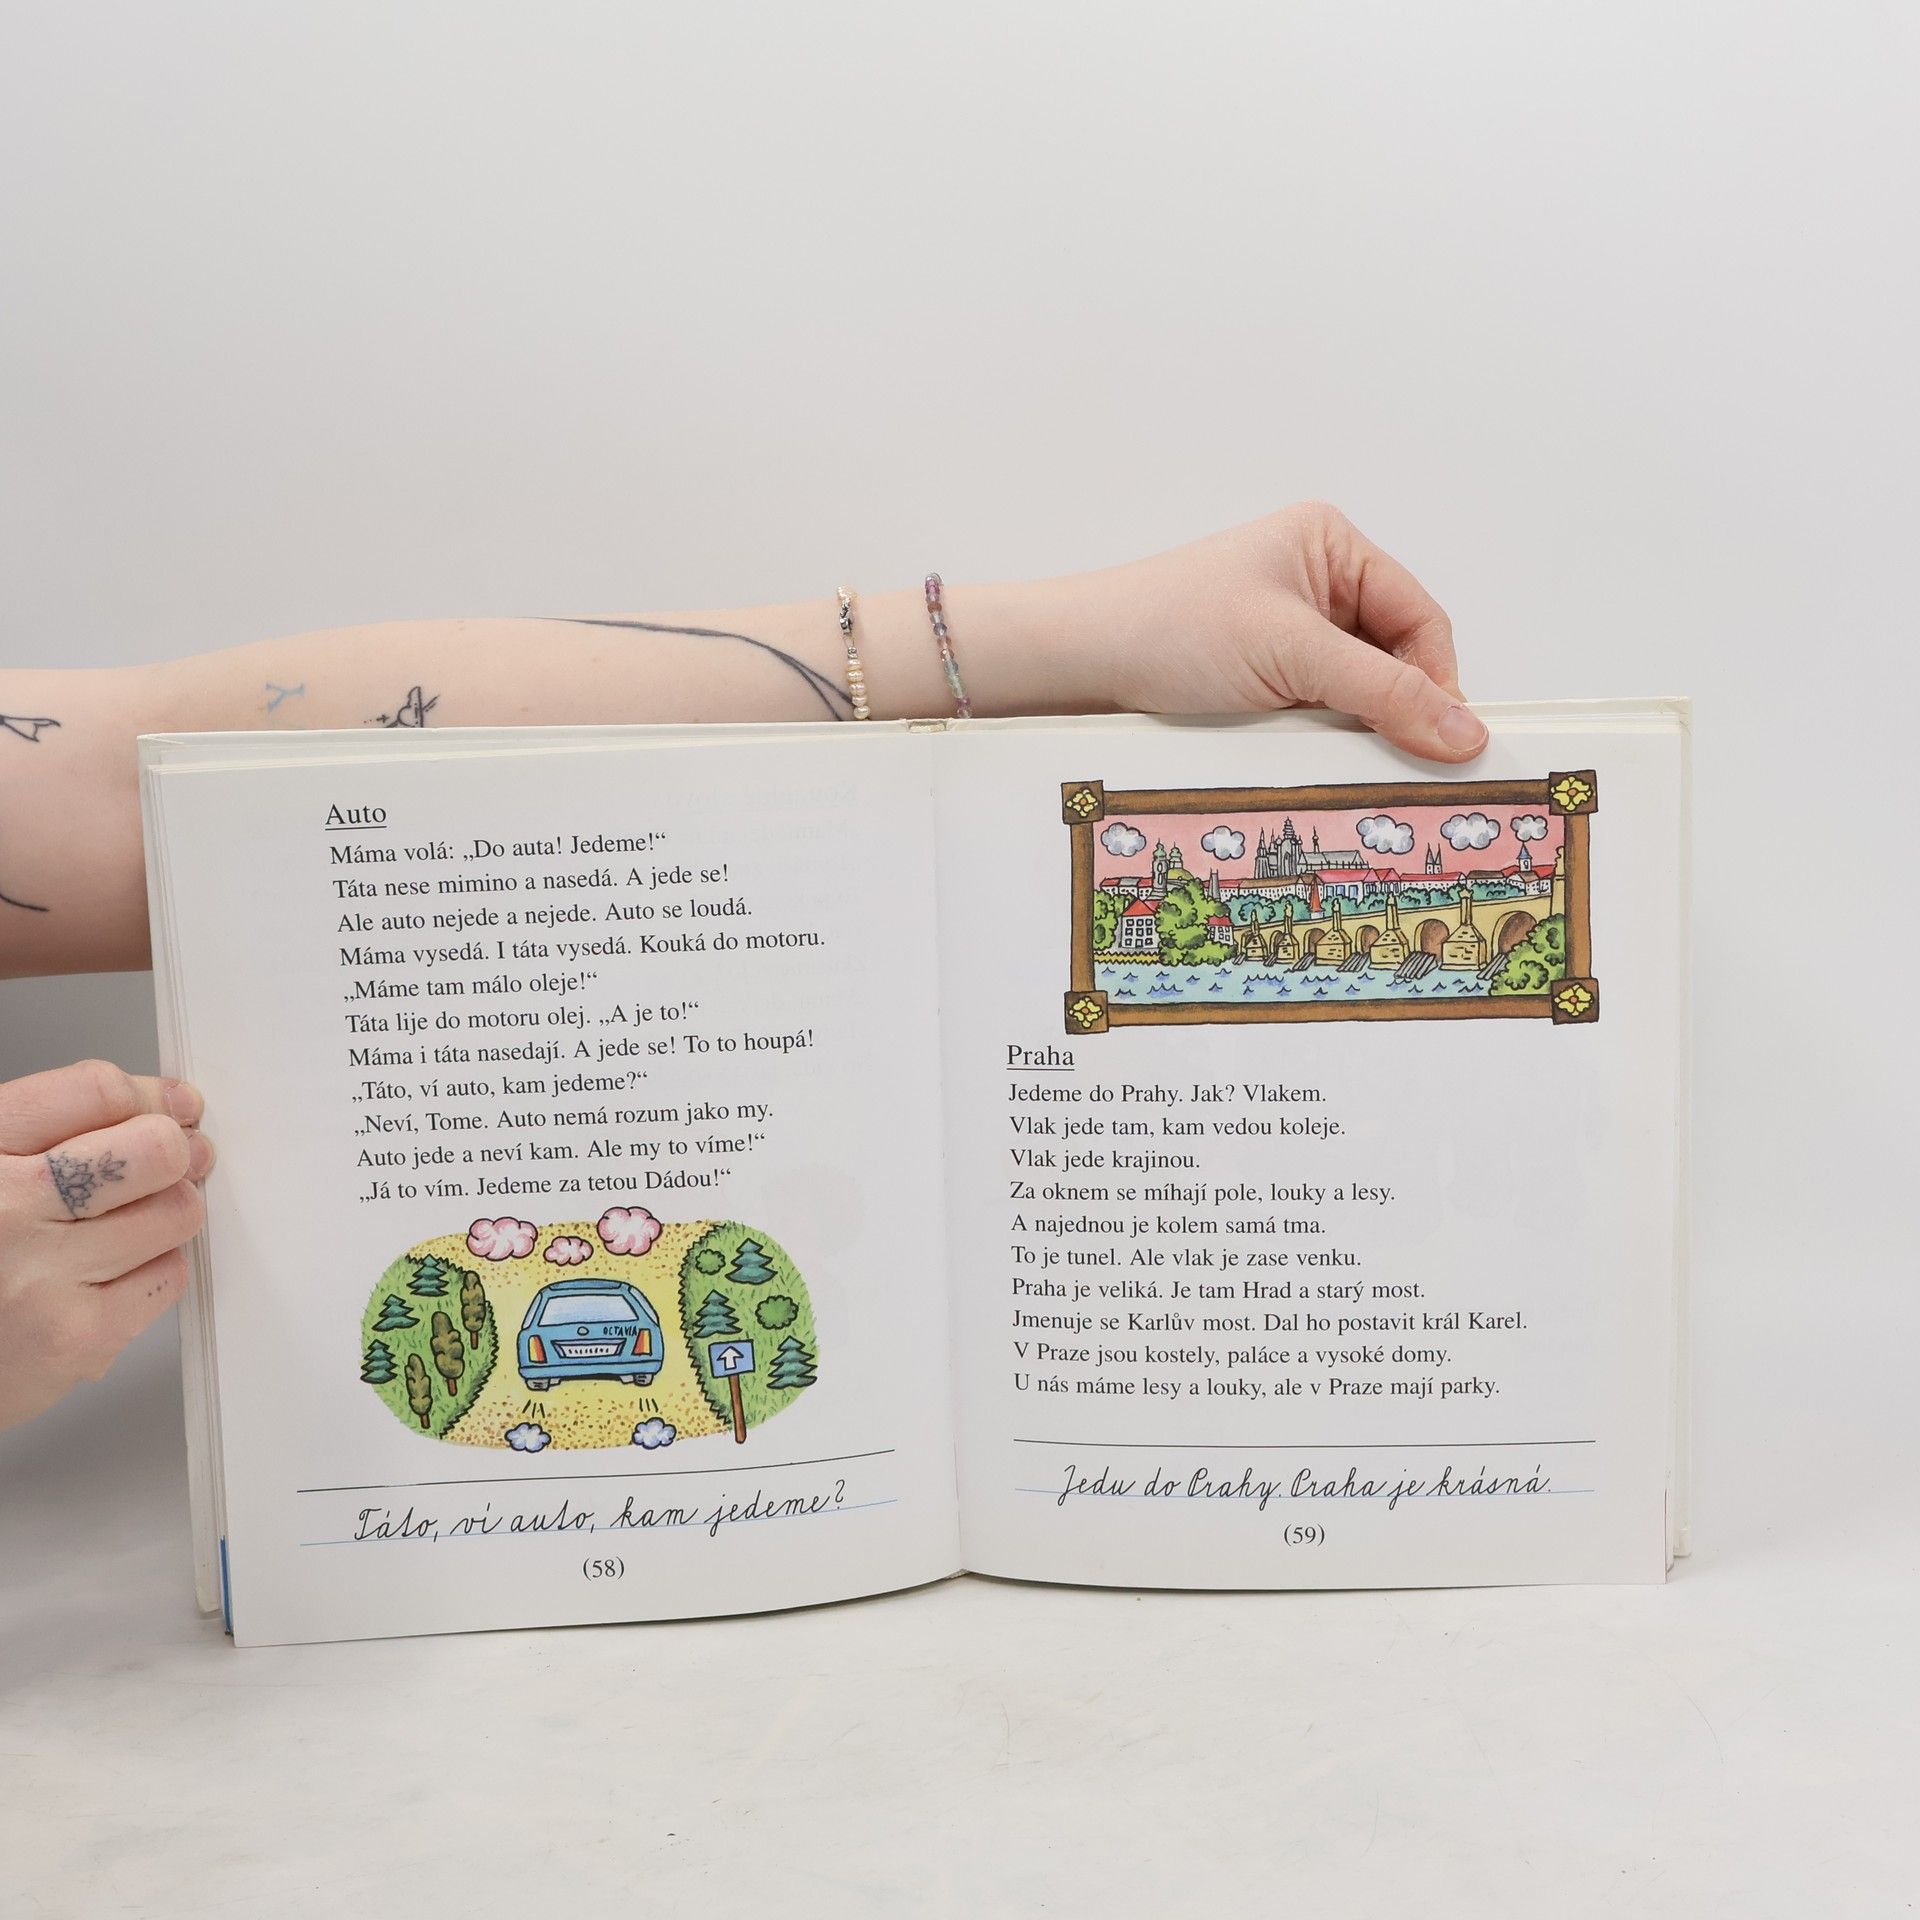 Auto
Máma volá: „Do auta! Jedeme!“
Táta nese mimino a nasedá. A jede se!
Ale auto nejede a nejede. Auto se loudá.
Máma vysedá. I táta vysedá. Kouká do motoru.
„Máme tam málo oleje!“
Táta lije do motoru olej. „A je to!“
Máma i táta nasedají. A jede se! To to houpá!
„Táto, ví auto, kam jedeme?“
„Neví, Tome. Auto nemá rozum jako my.
Auto jede a neví kam. Ale my to víme!“
„Já to vím. Jedeme za tetou Dádou!“
OCTAVIA
Táto, ví auto, kam jedeme?
(58)
Praha
Jedeme do Prahy. Jak? Vlakem.
Vlak jede tam, kam vedou koleje.
Vlak jede krajinou.
Za oknem se míhají pole, louky a lesy.
A najednou je kolem samá tma.
To je tunel. Ale vlak je zase venku.
Praha je veliká. Je tam Hrad a starý most.
Jmenuje se Karlův most. Dal ho postavit král Karel.
V Praze jsou kostely, paláce a vysoké domy.
U nás máme lesy a louky, ale v Praze mají parky.
Jedu do Prahy. Praha je krásná.
(59)